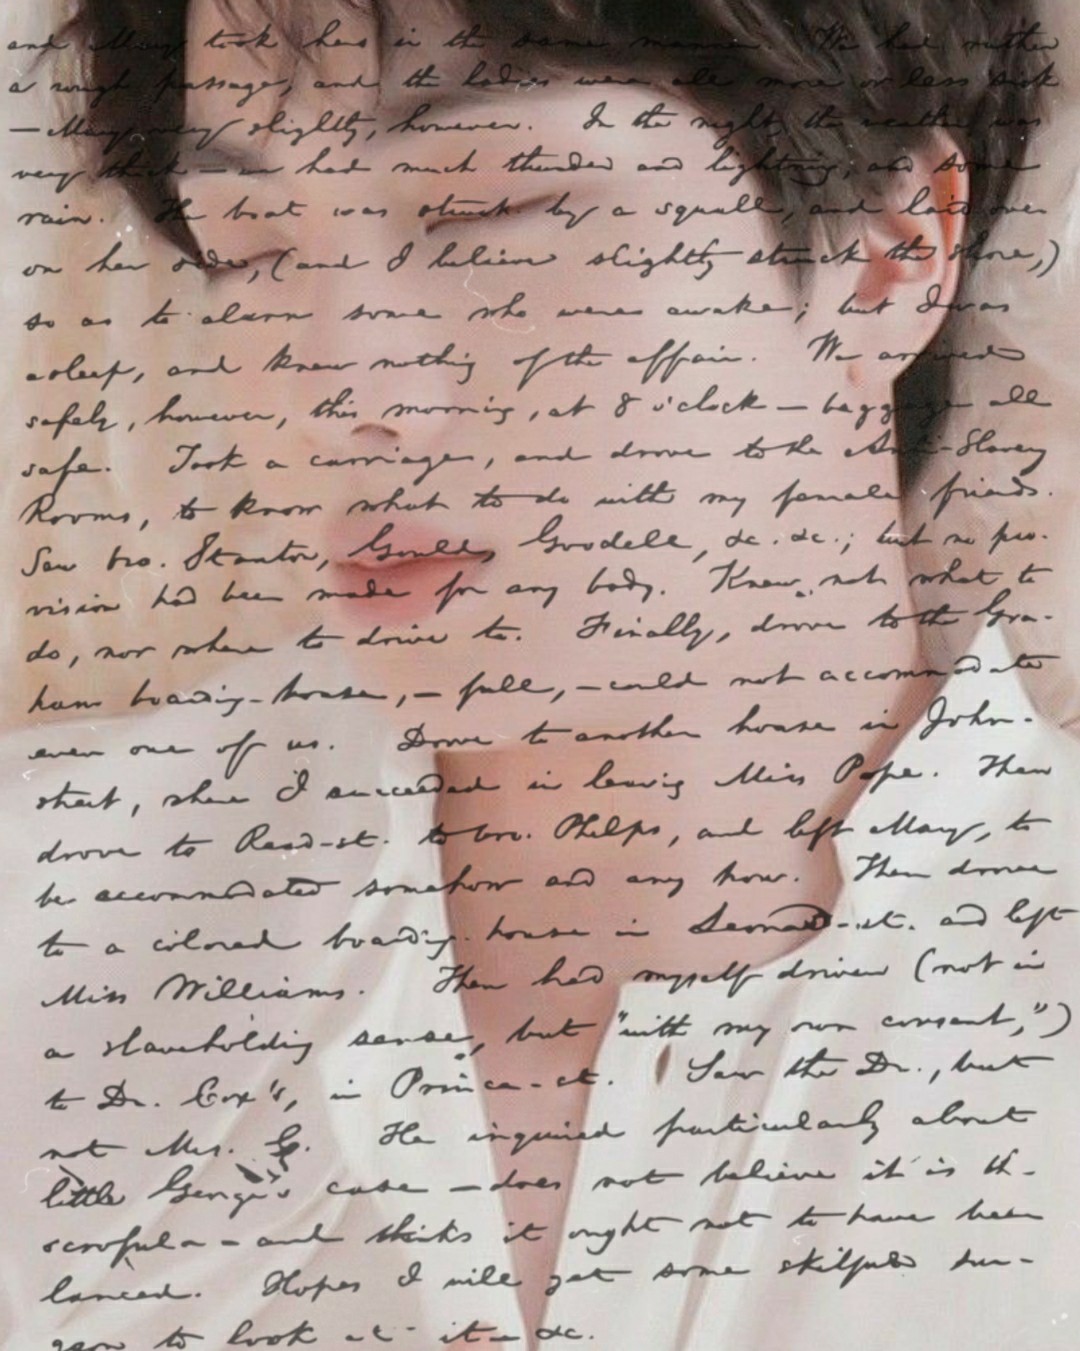 and Mary took hers in the same manner. We had rather
a rough passage, and the ladies were all more or less sick
— Mary very slightly, however. In the night the weather was
very thick — we had much thunder and lightning, and some
rain. The boat was struck by a squall, and laid over
on her side, (and I believe slightly struck the shore,)
so as to alarm some who were awake; but I was
asleep, and knew nothing of the affair. We arrived
safely, however, this morning, at 8 o'clock — baggage all
safe. Took a carriage, and drove to the Anti-Slavery
Rooms, to know what to do with my female friends.
Saw bro. Stanton, Gould, Goodell, &c. &c.; but no pro-
vision had been made for any body. Knew not what to
do, nor where to drive to. Finally, drove to the Gra-
ham boarding-house, — full, — could not accommodate
even one of us. Drove to another house in John-
street, where I succeeded in leaving Miss Pope. Then
drove to Read-st. to bro. Phelps, and left Mary, to
be accommodated somehow and any how. Then drove
to a colored boarding-house in Leonard-st. and left
Miss Williams. Then had myself driven (not in
a slaveholding sense, but "with my own consent,")
to Dr. Cox's, in Prince-st. Saw the Dr., but
not Mrs. He inquired particularly about
little George's case — does not believe it is th-
scrofula — and thinks it ought not to have been
lanced. Hopes I will get some skilful sur-
geon to look at it — &c.